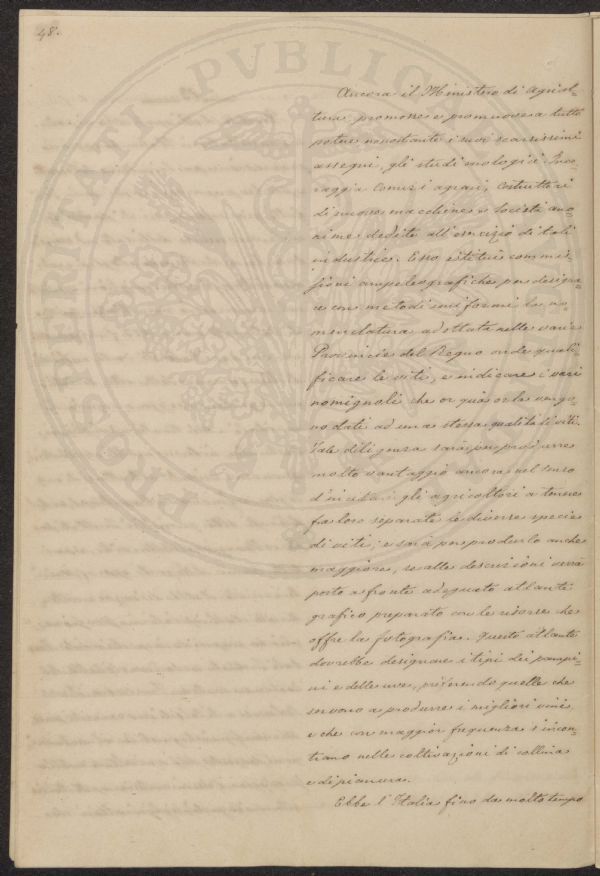 48.
PROSPERITATI PVBLIC
Ancora il Ministero di Agricol=
tura promosse e promuove a tutto
potere nonostante i suoi scarsissimi
assegni, gli studi enologici. Inco=
raggia Comizi agrari, Costruttori
di nuove macchine e Società ano=
nime dedite all'esercizio di tali
industrie. Esso istituì commis=
sioni ampelografiche per designa=
re con metodi uniformi la no=
menclatura adottata nelle varie
Provincie del Regno onde quali=
ficare le viti, e indicare i vari
nomignoli che or quà or là vengo=
no dati ad una stessa qualità di viti.
Tale diligenza sarà per produrre
molto vantaggio ancora nel senso
d'incitare gli agricoltori a tenere
fra loro separate le diverse specie
di viti; e sarà per produrlo anche
maggiore, se alle descrizioni verrà
posto a fronte adeguato atlante
grafico preparato con le risorse che
offre la fotografia. Questo atlante
dovrebbe designare i tipi dei pampi=
ni e delle uve, preferendo quelle che
servono a produrre i migliori vini,
e che con maggior frequenza s'incon=
trano nelle coltivazioni di collina
e di pianura.
Ebbe l'Italia fino da molto tempo